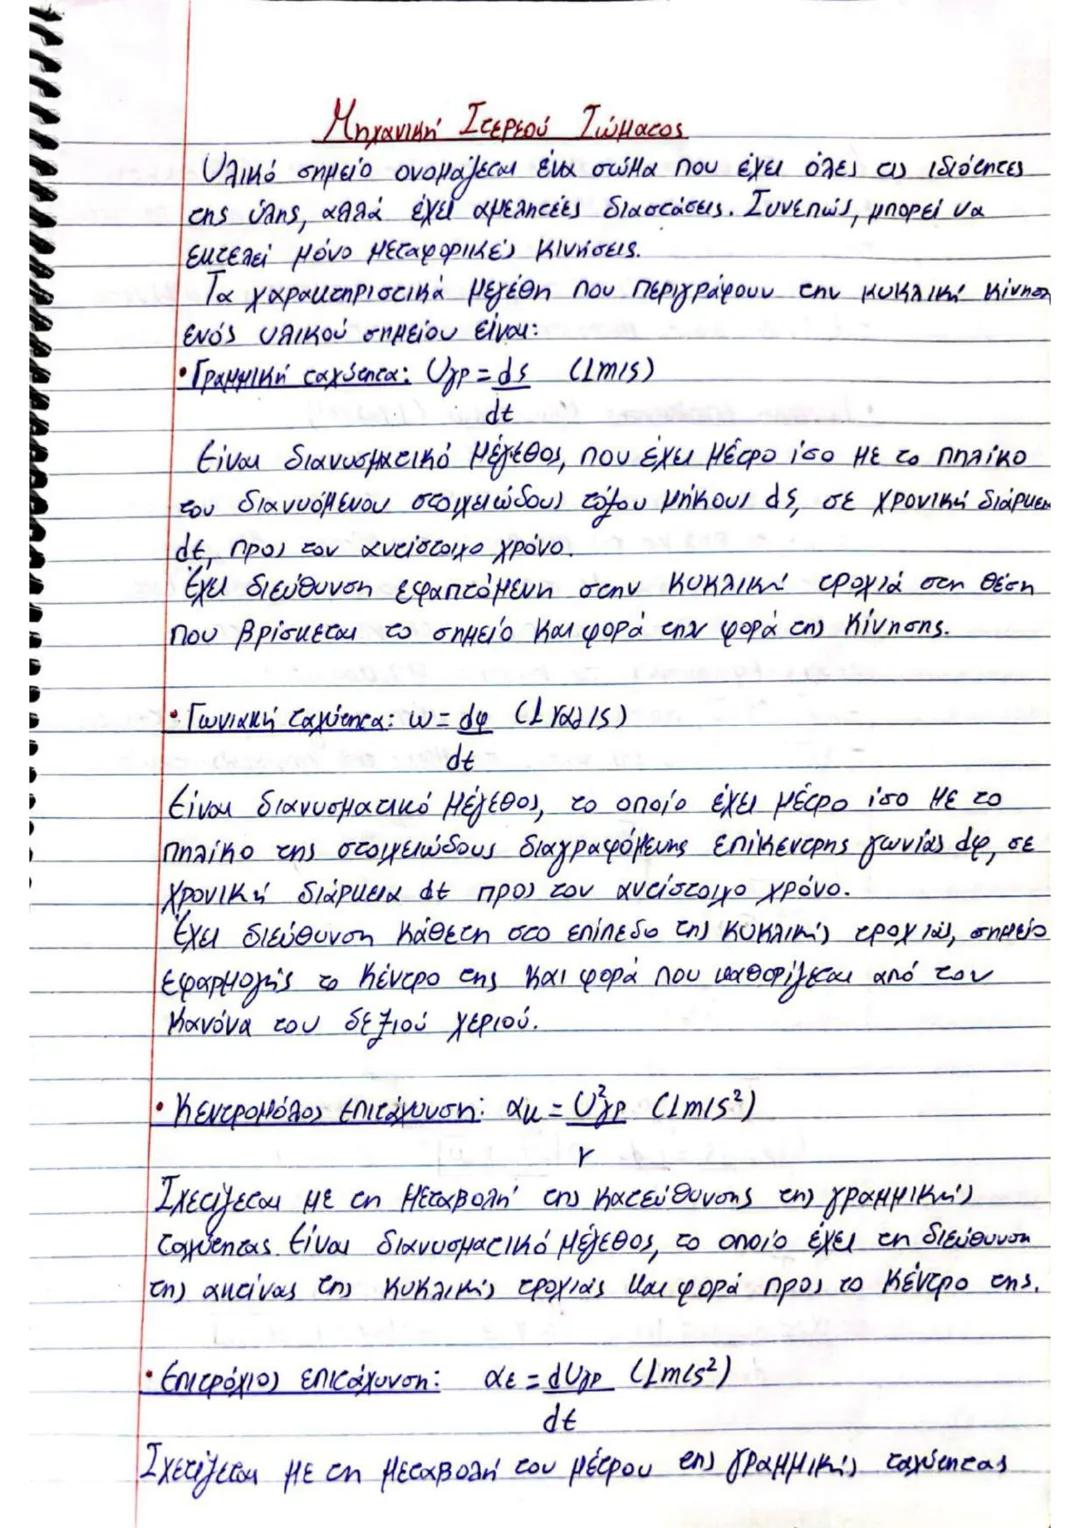 Μηχανική Στερεού Σώματος
Υλικό σημείο ονομάζεται ένα σώμα που έχει όλες τις ιδιότητες
της ύλης, αλλά έχει αμελητέες διαστάσεις. Συνεπώς, μπορεί να
εκτελεί μόνο μεταφορικές κινήσεις.
Τα χαρακτηριστικά μεγέθη που περιγράφουν την κυκλική κίνηση
ενός υλικού σημείου είναι:
• Γραμμική ταχύτητα: υγρ = ds (1m/s)
dt
Είναι διανυσματικό μέγεθος, που έχει μέτρο ίσο με το πηλίκο
του διανυόμενου στοιχειώδους τόξου μήκους ds, σε χρονική διάρκεια
dt, προς τον αντίστοιχο χρόνο.
Έχει διεύθυνση εφαπτόμενη στην κυκλική τροχιά στη θέση
που βρίσκεται το σημείο και φορά την φορά της κίνησης.
• Γωνιακή ταχύτητα: ω = dφ (1 rad/s)
dt
Είναι διανυσματικό μέγεθος, το οποίο έχει μέτρο ίσο με το
πηλίκο της στοιχειώδους διαγραφόμενης επίκεντρης γωνίας dφ, σε
χρονική διάρκεια dt προς τον αντίστοιχο χρόνο.
Έχει διεύθυνση κάθετη στο επίπεδο της κυκλικής τροχιάς, σημείο
εφαρμογής το κέντρο της και φορά που καθορίζεται από τον
κανόνα του δεξιού χεριού.
• Κεντρομόλος επιτάχυνση: ακ = υ²γρ (1m/s²)
r
Σχετίζεται με τη μεταβολή της κατεύθυνσης της γραμμικής
ταχύτητας. Είναι διανυσματικό μέγεθος, το οποίο έχει τη διεύθυνση
της ακτίνας της κυκλικής τροχιάς και φορά προς το κέντρο της.
• Επιτρόχιος επιτάχυνση: αε = dυγρ (1m/s²)
dt
Σχετίζεται με τη μεταβολή του μέτρου της γραμμικής ταχύτητας